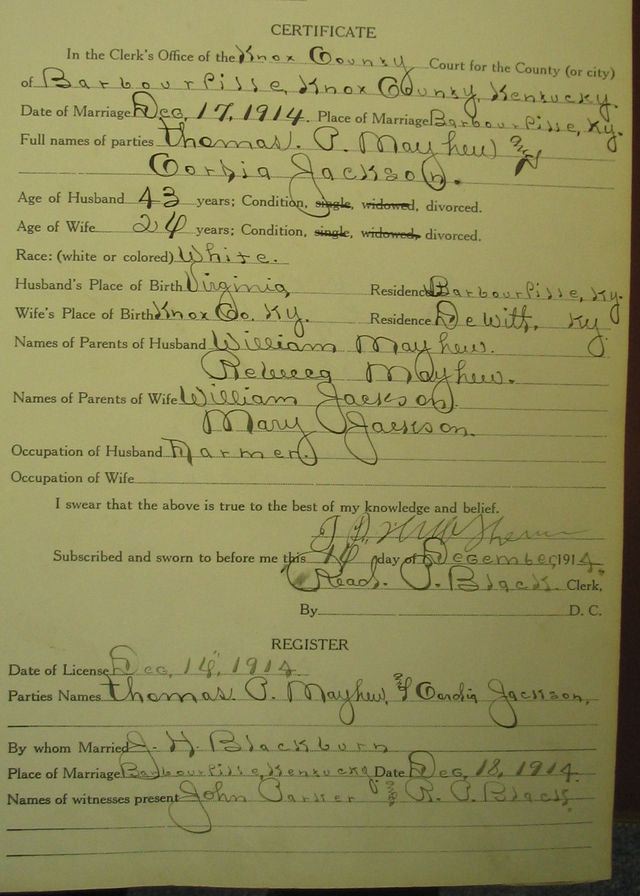 CERTIFICATE
In the Clerk's Office of the Knox County Court for the County (or city)
of Barbourville, Knox County, Kentucky.
Date of Marriage Dec, 17, 1914. Place of Marriage Barbourville, Ky.
Full names of parties Thomas. P. Mayhew and
Cordia Jackson.
Age of Husband 43 years; Condition, single, widowed, divorced.
Age of Wife 24 years; Condition, single, widowed, divorced.
Race: (white or colored) White.
Husband's Place of Birth Virginia Residence Barbourville, Ky.
Wife's Place of Birth Knox Co. Ky. Residence DeWitt, Ky
Names of Parents of Husband William Mayhew.
Rebecca Mayhew.
Names of Parents of Wife William Jackson.
Mary Jackson.
Occupation of Husband Farmer.
Occupation of Wife
I swear that the above is true to the best of my knowledge and belief.
Subscribed and sworn to before me this day of December, 1914.
Read. P. Black Clerk,
By D. C.
REGISTER
Date of License Dec, 1914
Parties Names Thomas. P. Mayhew, & Cordia Jackson,
By whom Married J. H. Blackburn
Place of Marriage Barbourville, Kentucky Date Dec, 18, 1914.
Names of witnesses present John Parker and R. P. Black.